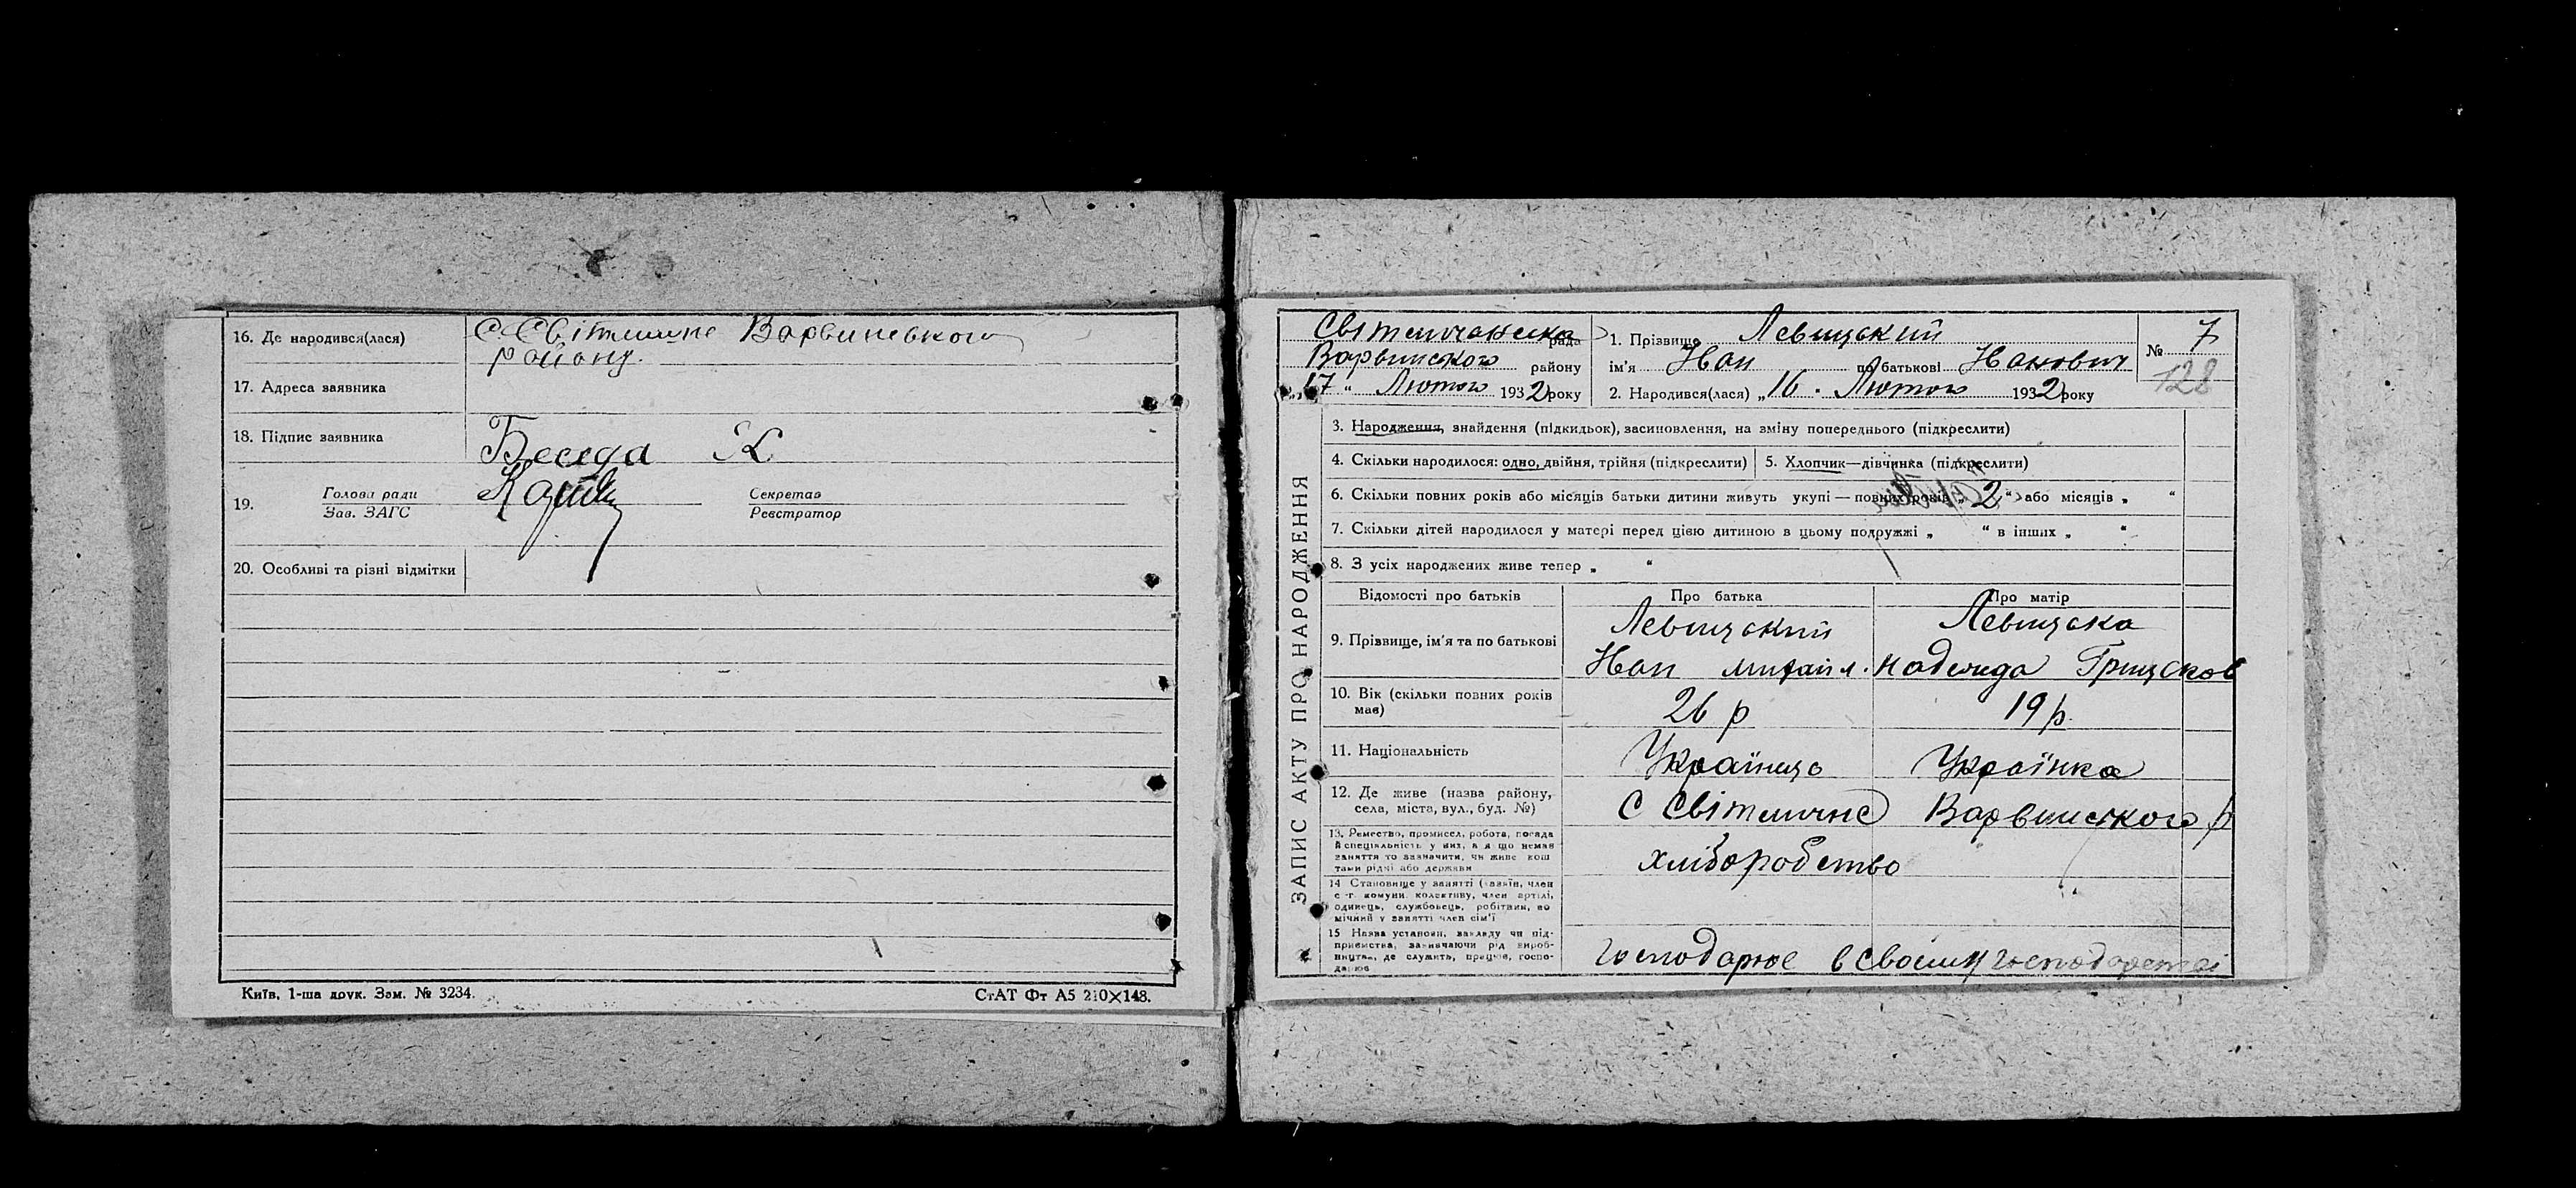 16. Де народився(лася) С. Світличне Варвинського
району.
17. Адреса заявника
18. Підпис заявника Беседа К
19. Голова ради Секретар
Зав. ЗАГС Реєстратор
20. Особливі та різні відмітки
Київ, 1-ша друк. Зам. № 3234.
СтАТ Фт А5 210×148.
ЗАПИС АКТУ ПРО НАРОДЖЕННЯ
Світличанська рада
Варвинського району
„17“ Лютого 1932 року
1. Прізвище Левицький
ім'я Иван по батькові Иванович
2. Народився(лася) „16. Лютого 1932 року
№ 7
128
3. Народження, знайдення (підкидьок), засиновлення, на зміну попереднього (підкреслити)
4. Скільки народилося: одно, двійня, трійня (підкреслити)
5. Хлопчик—дівчинка (підкреслити)
6. Скільки повних років або місяців батьки дитини живуть укупі — повних років „2“ або місяців „ “
7. Скільки дітей народилося у матері перед цією дитиною в цьому подружжі „ “ в інших „ “
8. З усіх народжених живе тепер „ “
Відомості про батьків Про батька Про матір
9. Прізвище, ім'я та по батькові Левицький Левицька
Иван Михайл. Надежда Грицьков
10. Вік (скільки повних років має) 26 р 19 р.
11. Національність Українць Українка
12. Де живе (назва району, села, міста, вул., буд. №) С Світличне Варвинського р
13. Ремество, промисел, робота, посада
й спеціяльність у них, а якщо немає
заняття то зазначити, чи живе кош
тами рідні або держави
хліборобство
14 Становище у занятті (хазяїн, член
с.-г. комуни, колективу, член артілі,
одинець, службовець, робітник, по
мічний у занятті член сім'ї
15 Назва установи, закладу чи під-
приємства, зазначаючи рід вироб-
ництва, де служить, працює, госпо-
дарює
господарює в своєму господарстві